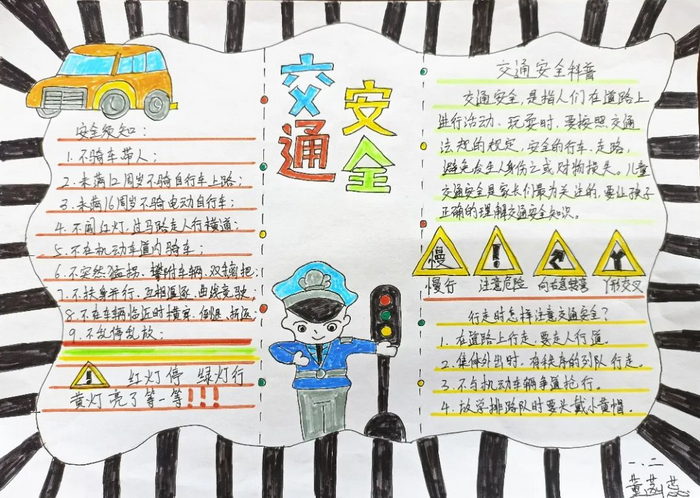 交通
安全
安全须知：
1.不骑车带人；
2.未满12周岁不骑自行车上路；
3.未满16周岁不骑电动自行车；
4.不闯红灯,过马路走人行横道；
5.不在机动车道内骑车；
6.不突然猛拐、攀附车辆、双手离把；
7.不扶身并行、互相追逐、曲线竞驶。
8.不在车辆临近时横穿、
9.不乱停乱放；
红灯停 绿灯行
黄灯亮了等一等!!!
交通安全科普
交通安全,是指人们在道路上
进行活动、玩耍时,要按照交通
法规的规定,安全的行车、走路,
避免发生人身伤亡或财物损失。儿童
交通安全是家长们最为关注的,要让孩子
正确的理解交通安全知识。
慢
!
慢行 注意危险 向右急转弯 Y形交叉
行走时怎样注意交通安全？
1.在道路上行走,要走人行道。
2.集体外出时,有秩序的列队行走。
3.不与机动车辆争道抢行。
4.放学排路队时要头戴小黄帽。
一.二